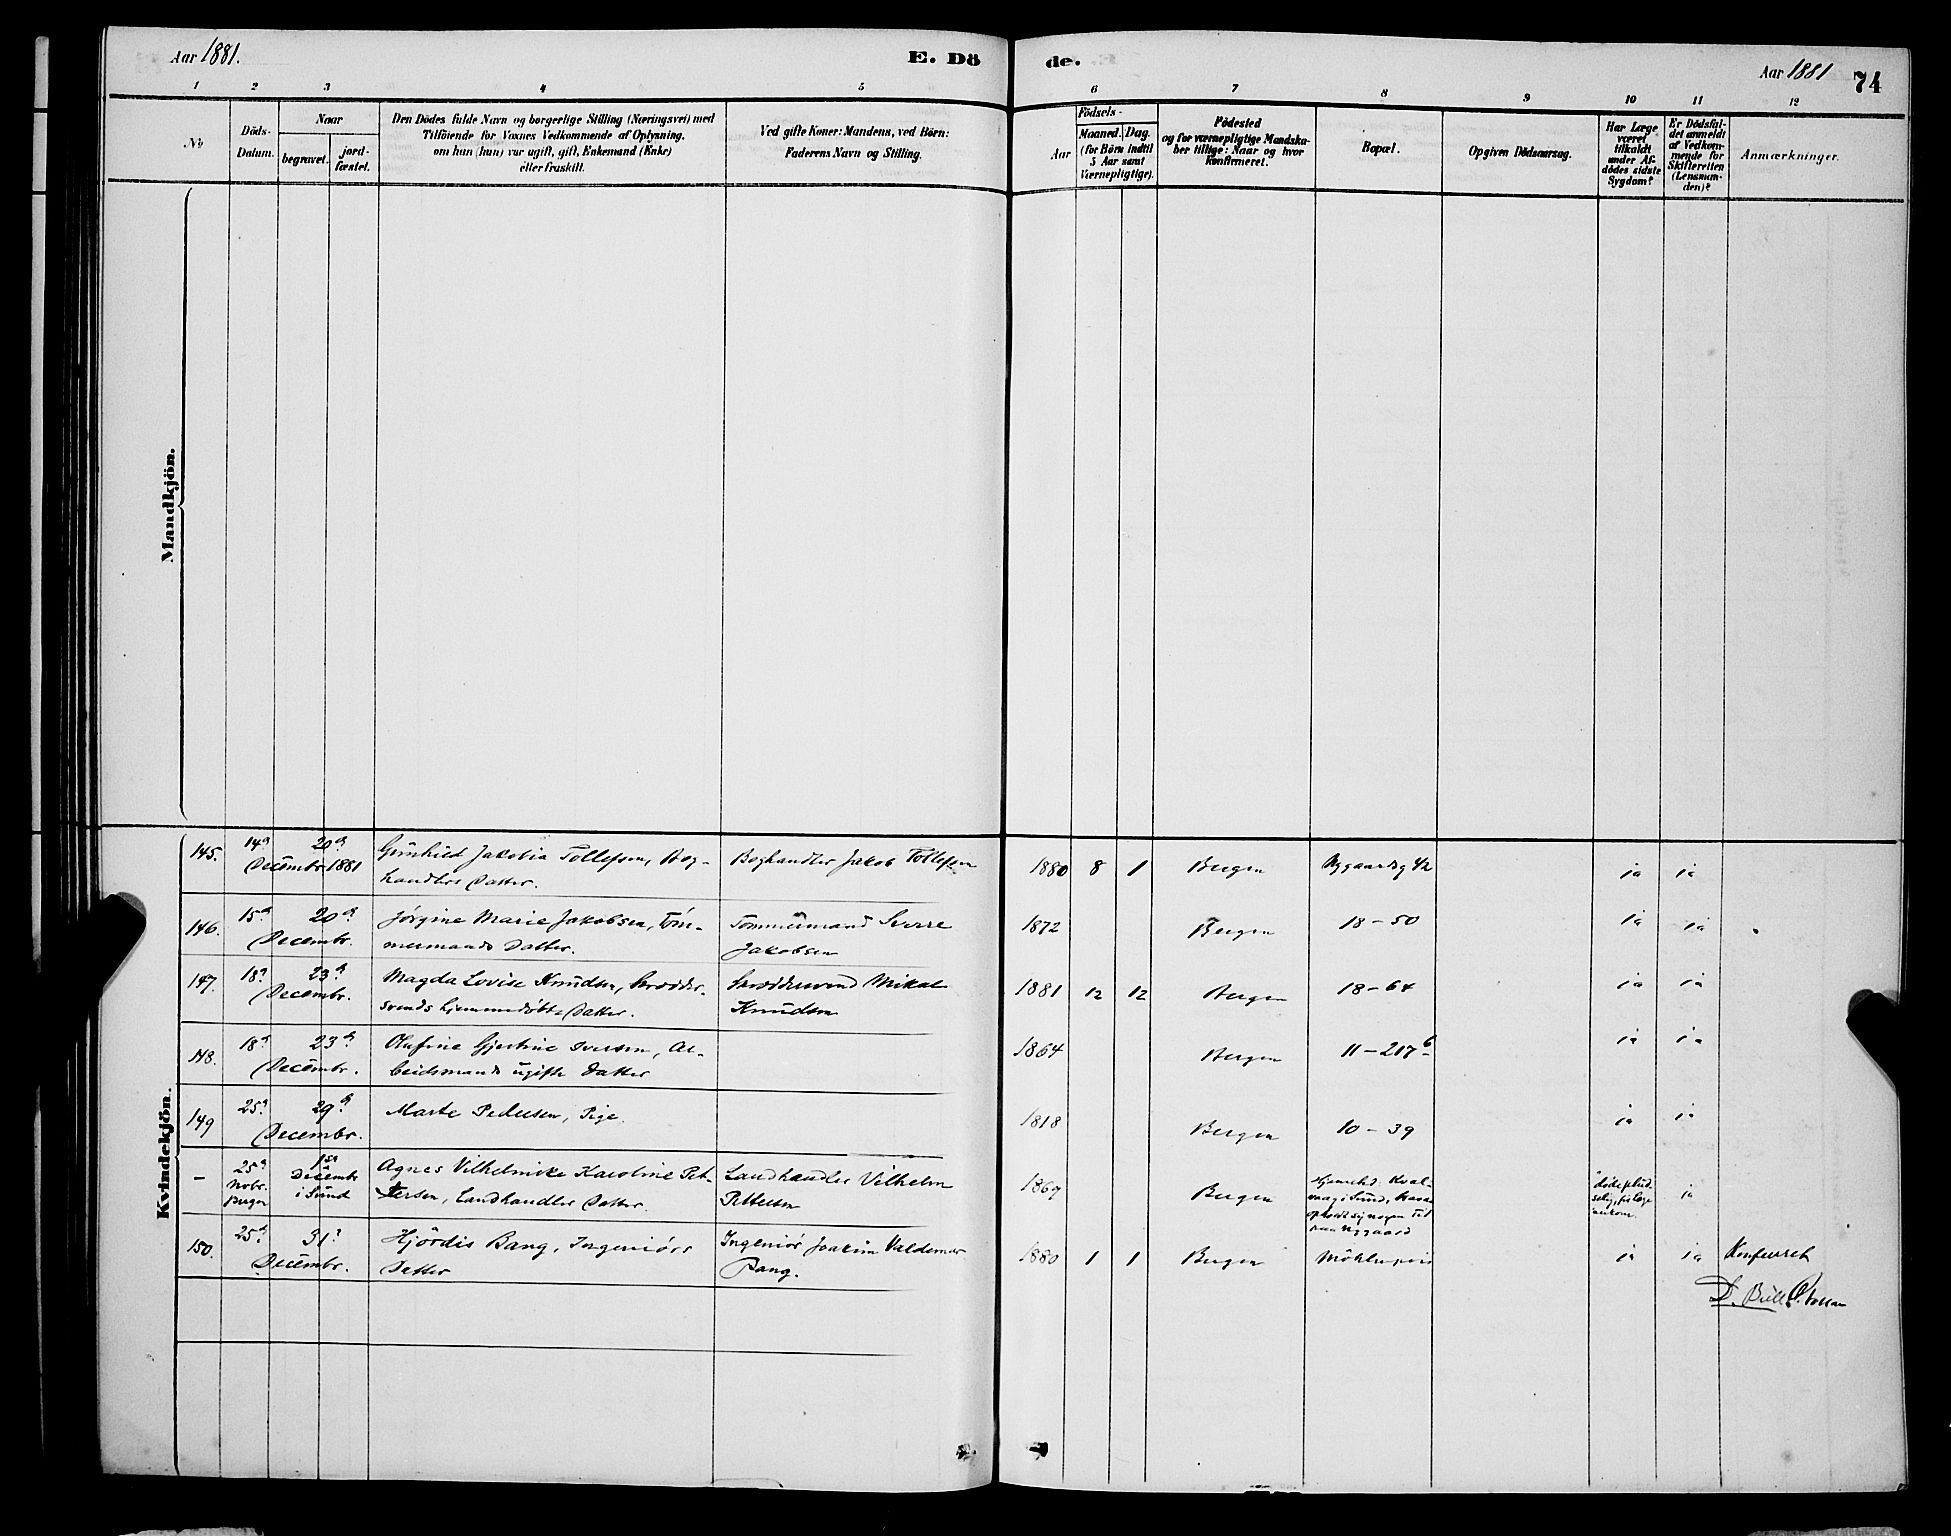 Aar 1881.
E. Dö
de.
Aar 1881
74
1 2 3 4 5 6 7 8 9 10 11 12
No
Döds-
Datum.
Naar
begravet.
jord-
fæstet.
Den Dödes fulde Navn og borgerlige Stilling (Næringsvei) med
Tilföiende for Voxnes Vedkommende af Oplysning,
om han (hun) var ugift, gift, Enkemand (Enke)
eller fraskilt.
Ved gifte Koner: Mandens, ved Börn:
Faderens Navn og Stilling.
Födsels-
Aar
Maaned.
Dag.
(for Börn indtil
5 Aar samt
Værnepligtige).
Födested
og for værnepligtige Mandska-
ber tillige: Naar og hvor
konfirmeret.
Bopæl.
Opgiven Dödsaarsag.
Har Læge
været
tilkaldt
under Af-
dödes sidste
Sygdom?
Er Dödsfal-
det anmeldt
af Vedkom-
mende for
Skifteretten
(Lensman-
den)?
Anmærkninger.
Mandkjön.
Kvindekjön.
145. 14de 20de
Decembr. 1881
Gunhild Jakobia Tollefsen, Bog-
handlers Datter.
Boghandler Jakob Tollefsen
1880 8 1 Bergen Nygaardsg 42 ja ja
146. 15de 20de
Decembr.
Jørgine Marie Jakobsen, Tøm-
mermands Datter.
Tømmermand Sverre
Jakobsen
1872 Bergen 18-50 ja ja
147. 18de 23de
Decembr.
Magda Lovise Knudsen, Skrædder-
svends hjemmedøbte Datter.
Skræddersvend Mikal
Knudsen
1881 12 12 Bergen 18-64 ja ja
148. 18de 23de
Decembr.
Olufine Gjertine Iversen, Ar-
beidsmands ugifte Datter
1864 Bergen 11-217b ja ja
149 25de 29de
Decembr.
Marte Pedersen, Pige.
1818 Bergen 10-39 ja ja
- 25de
Novbr.
Bergen
1ste
Decembr
i Sund
Agnes Vilhelmike Karoline Pet-
tersen, Landhandlers Datter.
Landhandler Vilhelm
Pettersen
1869 Bergen
Hjemsted: Kval-
vaag i Sund,
paa Nygaard
døde plud-
selig, før Læge
ankom.
ja
150. 25de 31te
Decembr.
Hjördis Bang, Ingeniörs
Datter
Ingeniör Joakim Valdemar
Bang.
1880 1 1 Bergen Möhlenpris ja ja Konfereret
D. Bull